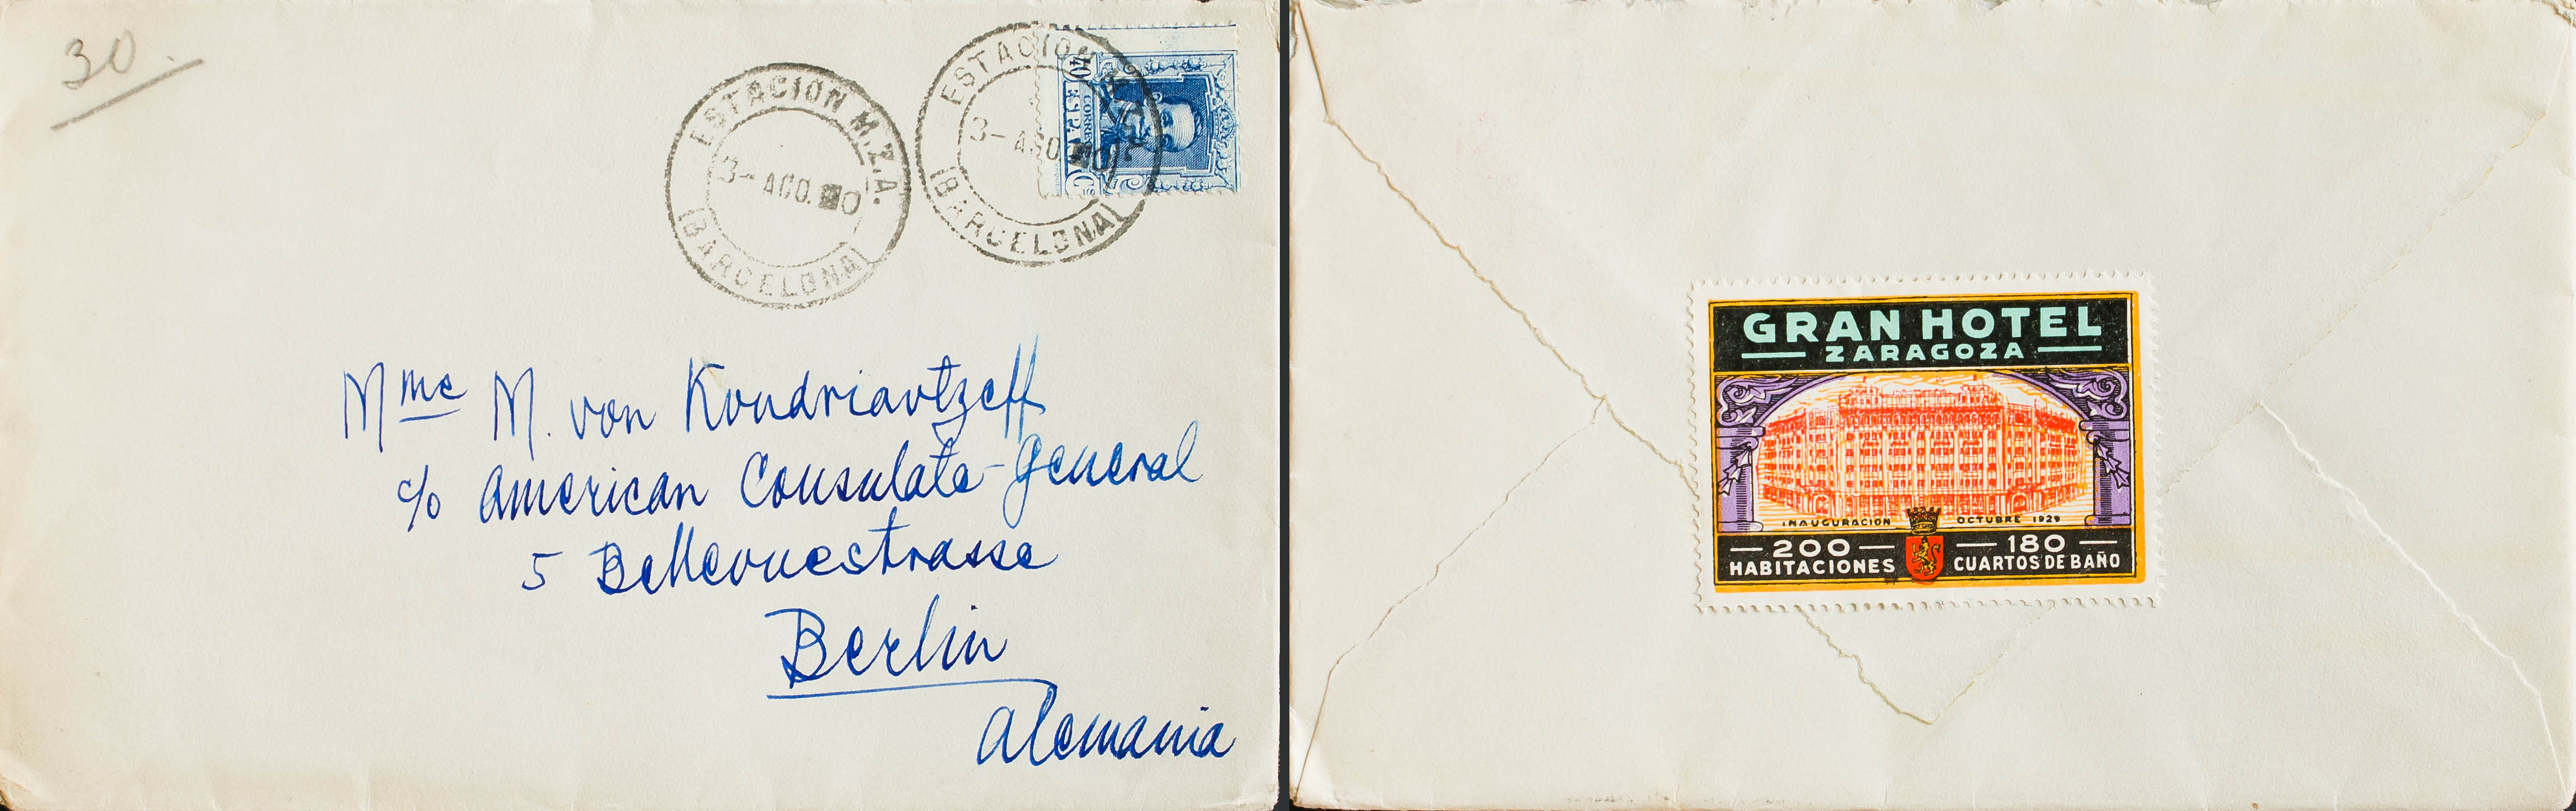 30.
ESTACION M.Z.A.
3- AGO. 0
(BARCELONA)
ESTACION
3- AGO. 0
(BARCELONA)
40
CORREOS
ESPAÑA
Cs
Mme M. von Kondriavtzeff
c/o American Consulate-General
5 Bellevuestrasse
Berlin
Alemania
GRAN HOTEL
ZARAGOZA
INAUGURACION OCTUBRE 1929
200 HABITACIONES
180 CUARTOS DE BAÑO